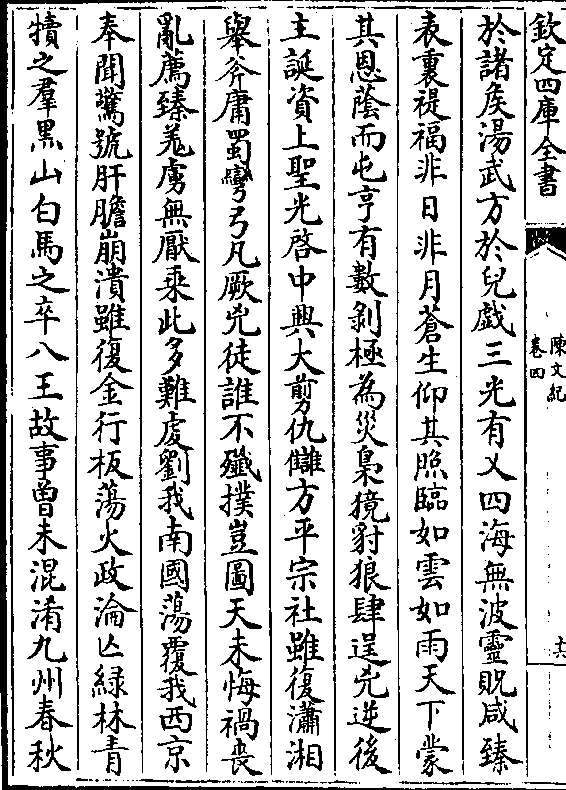 欽定四庫全書
陳文紀
卷四
十六
於諸侯湯武方於兒戲三光有乂四海無波靈貺咸臻
表裏禔福非日非月蒼生仰其照臨如雲如雨天下蒙
其恩蔭而屯亨有數剝極為災梟獍豺狼肆逞兇逆後
主誕資上聖光啓中興大剪仇讎方平宗社雖復瀟湘
舉斧庸蜀彎弓凡厥兇徒誰不殱撲豈圖天未悔禍喪
亂薦臻羌虜無厭乘此多難虔劉我南國蕩覆我西京
奉聞驚號肝膽崩潰雖復金行板蕩火政淪亡綠林青
犢之羣黑山白馬之卒八王故事曾未混淆九州春秋